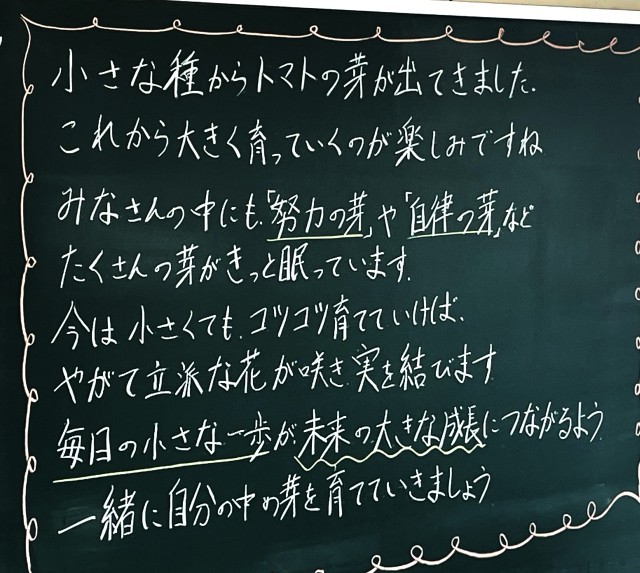 小さな種からトマトの芽が出てきました.
これから大きく育っていくのが楽しみですね
みなさんの中にも、「努力の芽」や「自律の芽」など
たくさんの芽がきっと眠っています.
今は小さくても、コツコツ育てていけば、
やがて立派な花が咲き、実を結びます
毎日の小さな一歩が未来の大きな成長につながるよう
一緒に自分の中の芽を育てていきましょう